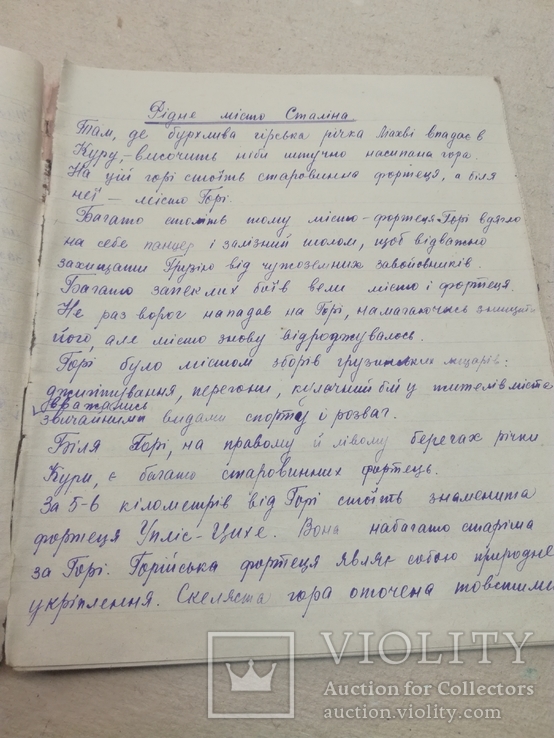 Рідне місто Сталіна
Там, де бурхлива гірська річка Ліахві впадає в
Куру, - височить ніби штучно насипана гора.
На цій горі стоїть старовинна фортеця, а біля
неї - місто Горі.
Багато століть тому місто-фортеця Горі вдягло
на себе панцер і залізний шолом, щоб відважно
захищати Грузію від чужоземних завойовників.
Багато запеклих боїв вели місто і фортеця.
Не раз ворог нападав на Горі, намагаючись знищити
його, але місто знову відроджувалось.
Горі було містом зборів грузинських
джигітування, перегони, кулачний бій у жителів міста
вважались
звичайними видами спорту і розваг.
Біля Горі, на правому й лівому берегах річки
Кури, є багато старовинних фортець.
За 5-6 кілометрів від Горі стоїть знаменита
фортеця Упліс-Цихе. Вона набагато старіша
за Горі. Горійська фортеця являє собою природне
укріплення. Скеляста гора оточена товстими
VIOLITY
Auction for Collectors
auction.violity.com